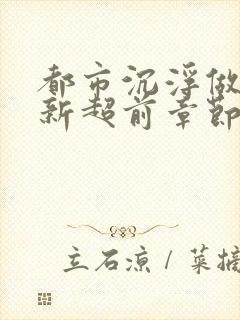 都市沉浮做
新超前章節
立石凉 / 菜摘